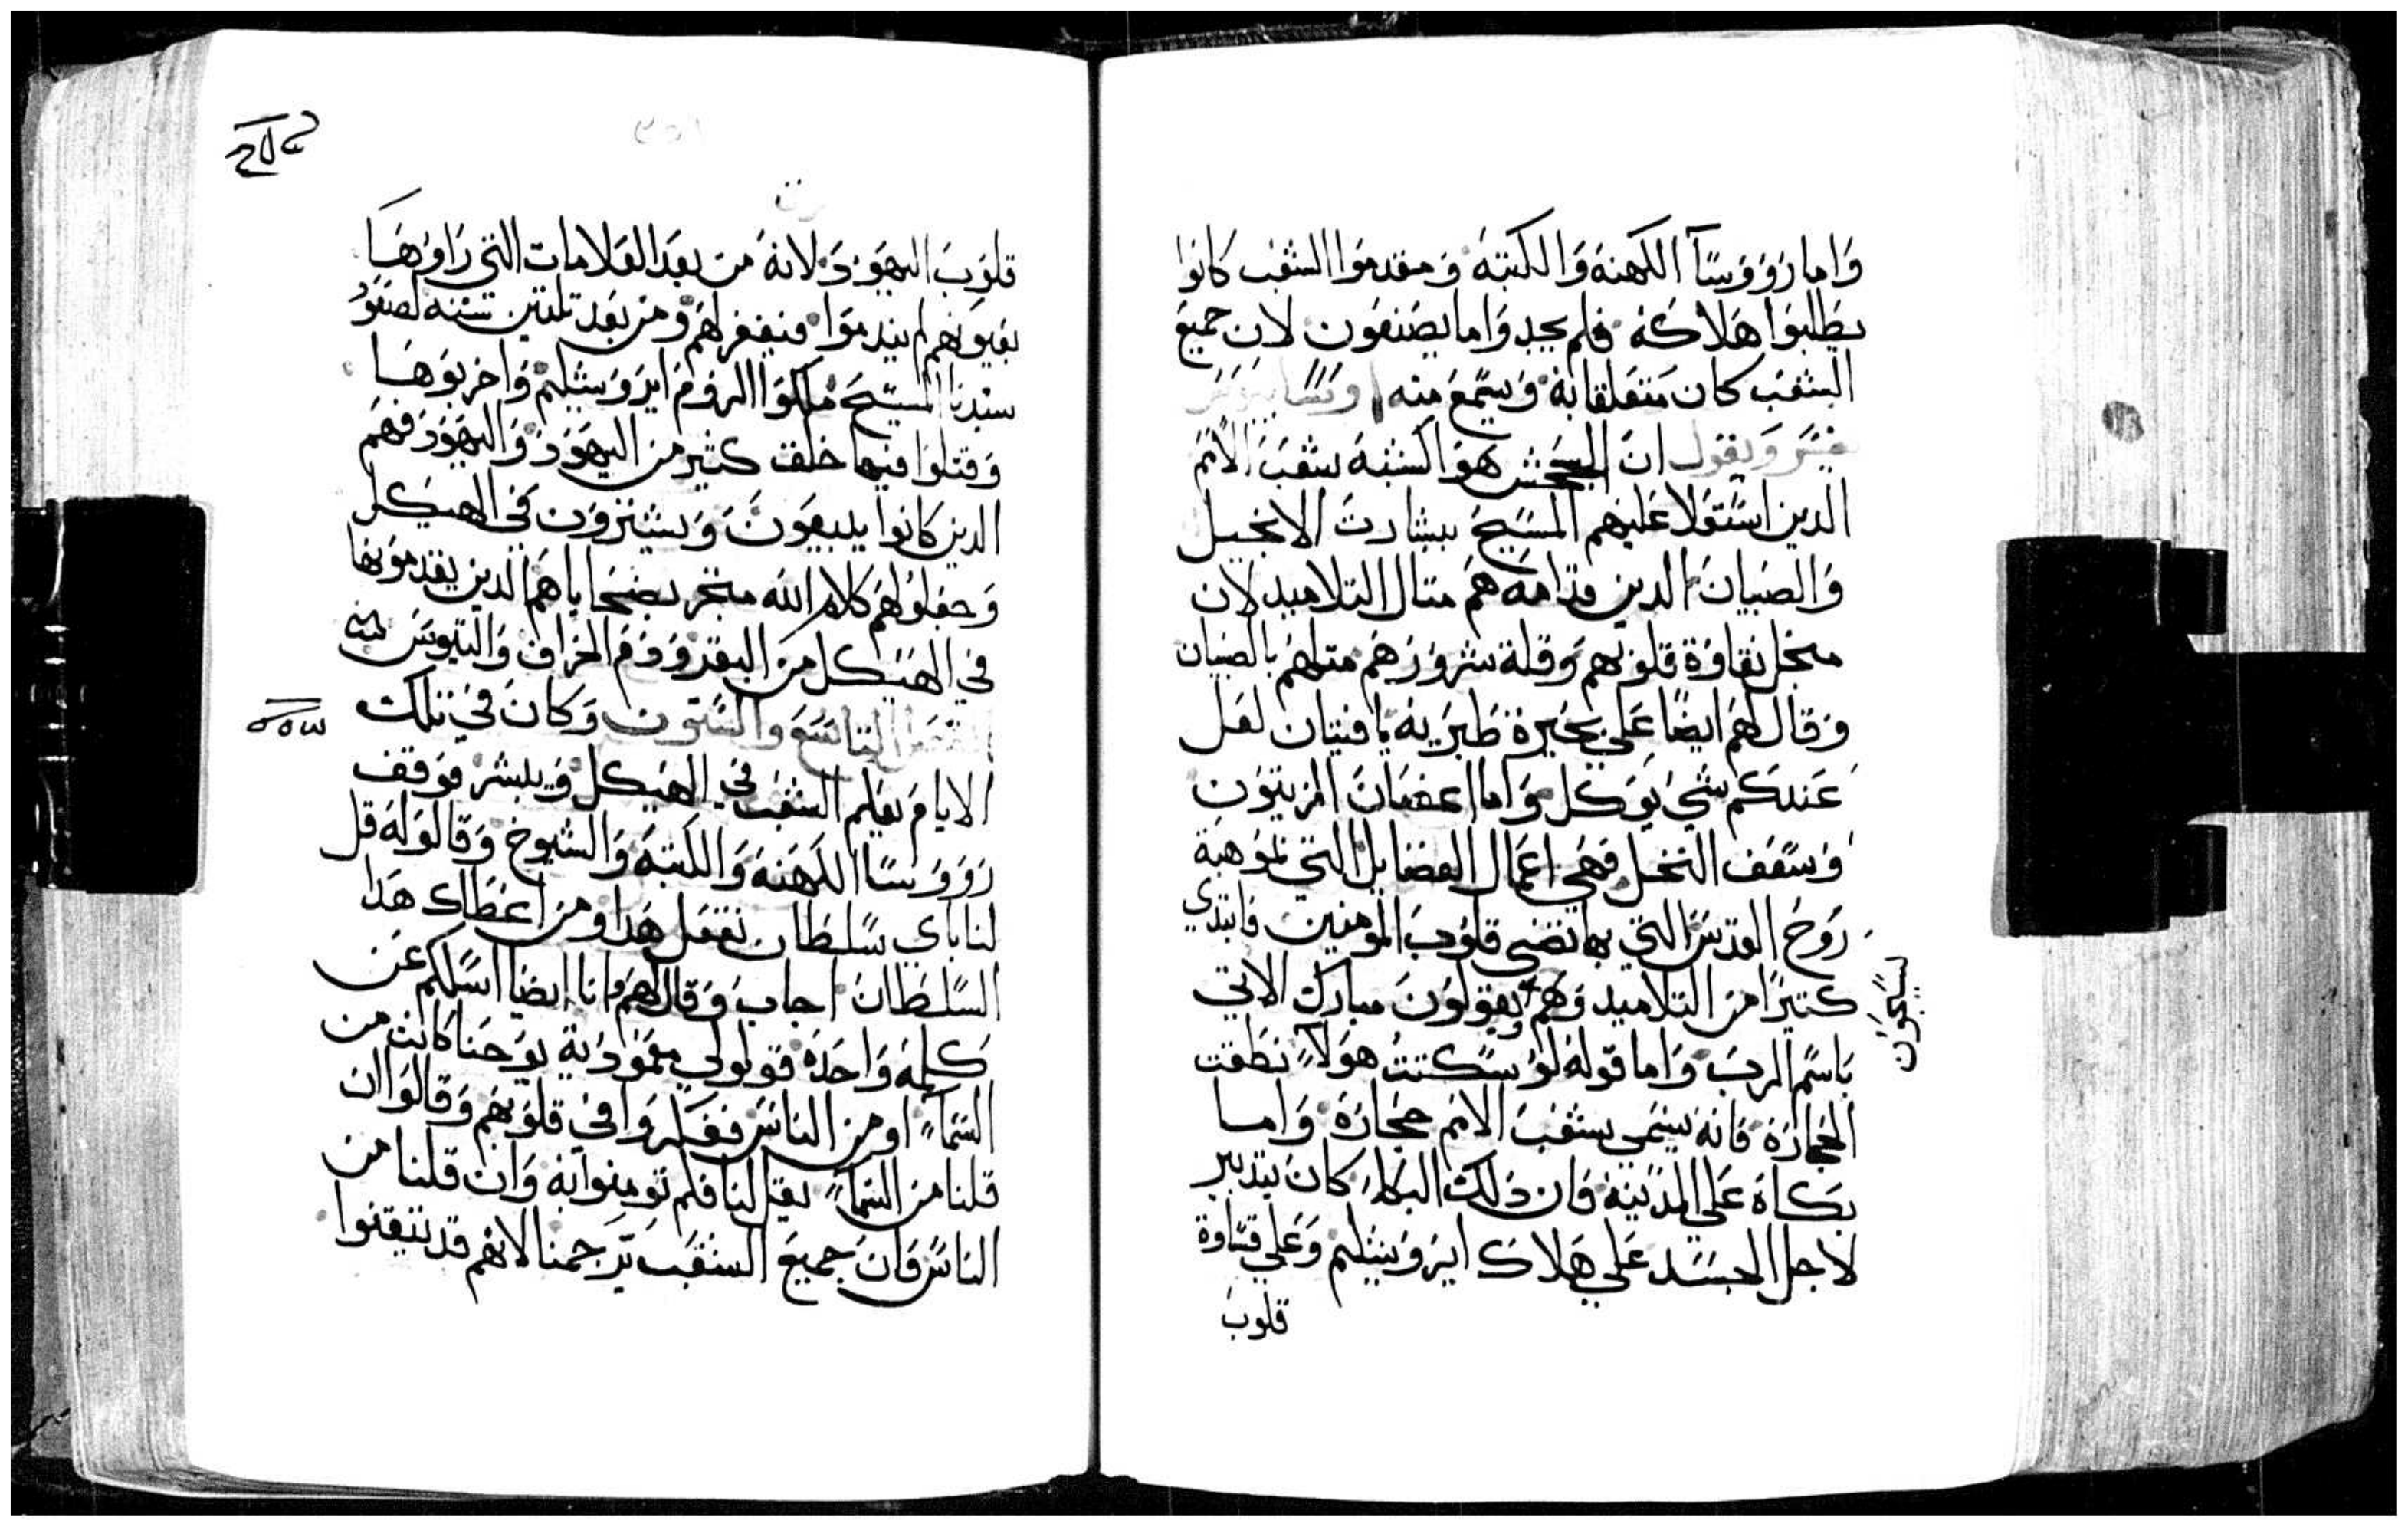 واما روووسآ الكهنة والكتبة ومقدموا الشعب كانوا
يطلبوا هلاكه فلم يجدوا ما يصنعون لان جميع
الشعب كان متعلقا به ويسمع منه
ويقول ان الجحش هو الشبه شعب الامم
الدين استولا عليهم المسيح ببشارت الانجيل
والصبيان الدين قدامه هم متال التلاميد لان
منجل نقاوة قلوبهم وقلة شرورهم متلهم بالصبيان
وقال لهم ايضا علي بحيرة طبرية يا فتيان لعل
عندكم شي يوكل واما اعصان الزيتون
وسعف النخل فهي اعمال الفضايل التي لموهبة
روح القدس التي بها تضي قلوب المومنين فابتدي
كتيرا من التلاميد وهم يقولون مبارك الاتي
يسبحون
باسم الرب واما قوله لو سكتت هولآ نطقت
الحجارة فانه يسمي شعب الامم حجارة واما
بكاه علي المدينة فان دلك البكاء كان بتدبير
لاجل الجسد علي هلاك ايروشليم وعلي قساوة
قلوب
قلوب اليهودي لانه من بعد العلامات التي راوها
بعيونهم لم يندموا فيغفر لهم ومن بعد تلتين سنه لصعود
سيدنا المسيح ملكوا الروم ايروشليم واخربوها
وقتلوا فيها خلق كثير من اليهود واليهود فهم
الدين كانوا يبيعون ويشترون في الهيكل
وجعلوا لهم كلام الله متجر بضحاياهم الدين يقدمونها
في الهيكل من البقر ودم الخراف والتيوس
التاسع والستون وكان في تلك
الايام يعلم الشعب في الهيكل ويبشر فوقف
روووسا الكهنة والكتبة والشيوخ وقالو له قل
لنا باي سلطان تفعل هدا ومن اعطاك هدا
السلطان اجاب وقال لهم وانا ايضا اسلكم عن
كلمة واحدة قولولي معمودية يوحنا كانت من
السمآ او من الناس ففكروا في قلوبهم وقالوا ان
قلنا من السمآ يقل لنا فلم تومنوا به وان قلنا من
الناس فان جميع الشعب يرجمنا لانهم قد تيقنوا